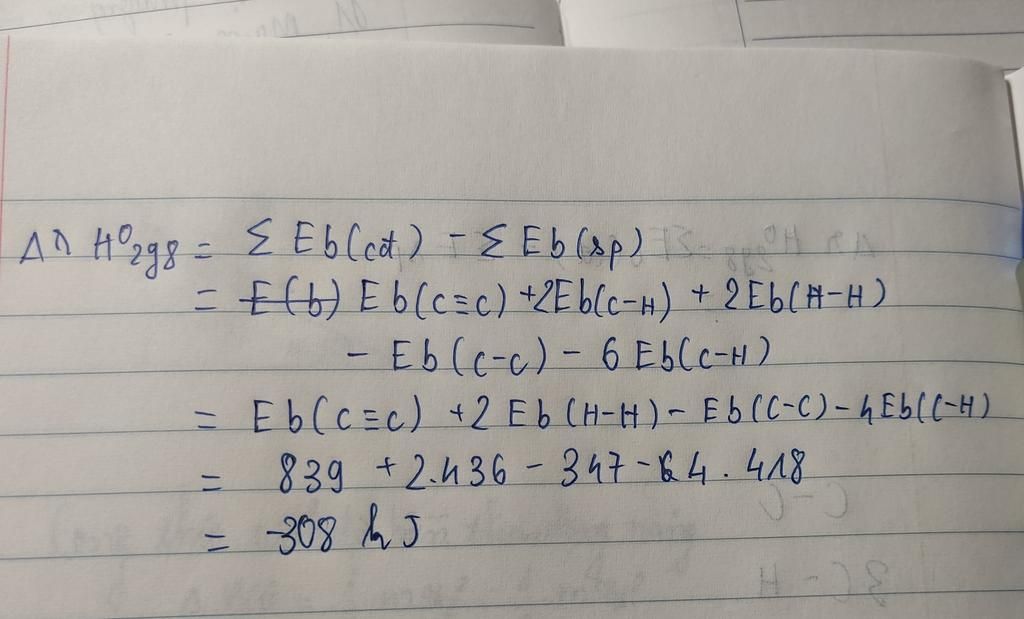 Δr H⁰298 = Σ Eb(cđ) - Σ Eb(sp)
= E(b) Eb(C≡C) +2Eb(C-H) + 2Eb(H-H)
- Eb(C-C) - 6 Eb(C-H)
= Eb(C≡C) +2 Eb(H-H) - Eb(C-C) - 4Eb(C-H)
= 839 + 2.436 - 347 - 4 . 418
= -308 kJ
C-C
3C-H